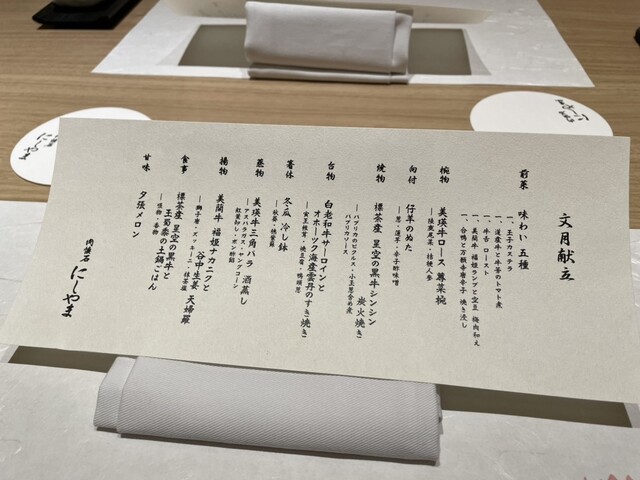 文月献立
前菜
味わい 五種
一、玉子カステラ
一、道産牛と牛蒡のトマト煮
一、牛舌 ロースト
一、美蘭牛 福姫ランプと空豆 梅肉和え
一、合鴨と万願寺唐辛子 焼き浸し
椀物
美瑛牛ロース 蓴菜椀
―順鹿尾菜・桔梗人参
向付
仔羊のぬた
―葱・蓮芋・辛子酢味噌
焼物
標茶産 星空の黒牛シンシン 炭火焼き
―パプリカのピクルス・小玉葱含め煮
パプリカソース
台物
白老和牛サーロインと
オホーツク海産雲丹のすき焼き
―黄玉・椎茸・焼豆腐・鴨頭葱
箸休
冬瓜 冷し鉢
―秋葵・桃紫蘇
蒸物
美瑛牛三角バラ 酒蒸し
―アスパラガス・ヤングコーン
紅葉卸し・ポン酢餡
揚物
美蘭牛 福姫ナカニクと
谷中生姜 天婦羅
―獅子唐・ズッキーニ・抹茶塩
食事
標茶産 星空の黒牛と
玉蜀黍の土鍋ごはん
―吸物・香物
甘味
夕張メロン
円山
にしやま
にしやま